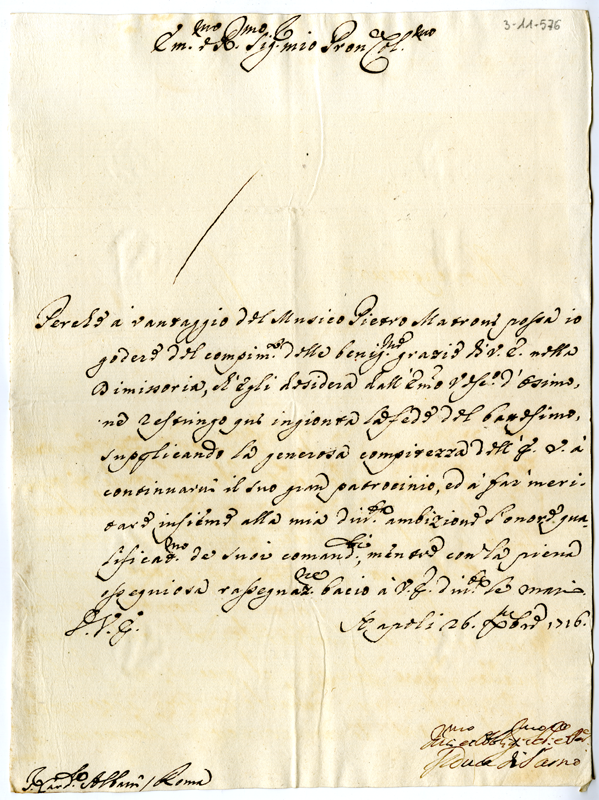 3-11-576
Em.mo e R.mo Sig. mio Pron Col.mo
Perche à vantaggio del Musico Pietro Matroni possa io
godere del compim.to delle benig.me grazie di V. E. nella
Dimissoria, ch'egli desidera dall'Em.o Vesc.o d'Osimo,
ne restringo qui ingionta la fede del battesimo,
supplicando la generosa compitezza dell'E. V. à
continuarmi il suo gran patrocinio, ed à far meri-
tare insieme alla mia ambizione l'onore qua-
lificad.mo de suoi comand.ti, mentre con la piena
osseguiosa rassegnaz.ne bacio à V. E. le mani.
D. V. E.
Napoli 26. 1716.
Duca di Sarno
Albani / Roma